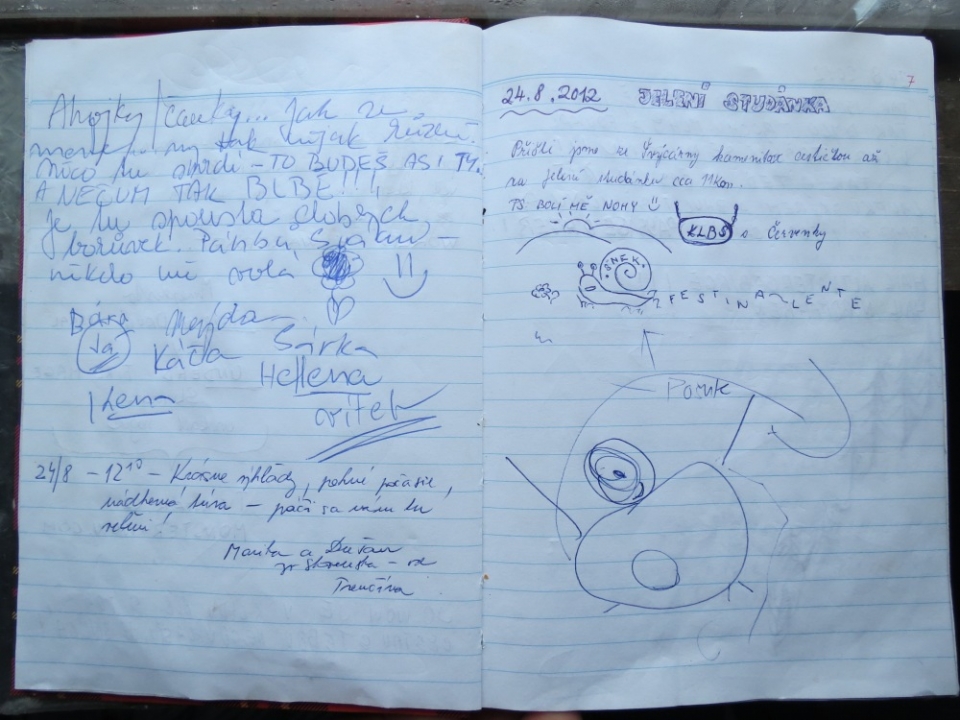 Ahojky čauky... Jak se
máte... my tak nějak různě.
Něco tu smrdí - TO BUDEŠ ASI TY.
A NEČUM TAK BLBE!!!
je tu spousta dobrých
borůvek. Pánbů
nikdo mě volá
Bára
Já
Káča
Šárka
Hellena
24/8 - 12¹⁰ - Krásne výhľady, pohné počasie,
nádherná túra - páči sa nám tu
veľmi!
Marta a Dušan
zo Slovenska - od
Trenčína
7
24.8.2012 JELENÍ STUDÁNKA
Přišli jsme ze Švýcárny kamenitou cestičkou až
na jelení studánku cca 11km.
PS BOLÍ MĚ NOHY
KLBS s Červenky
ŠNEK
FESTINA LENTE